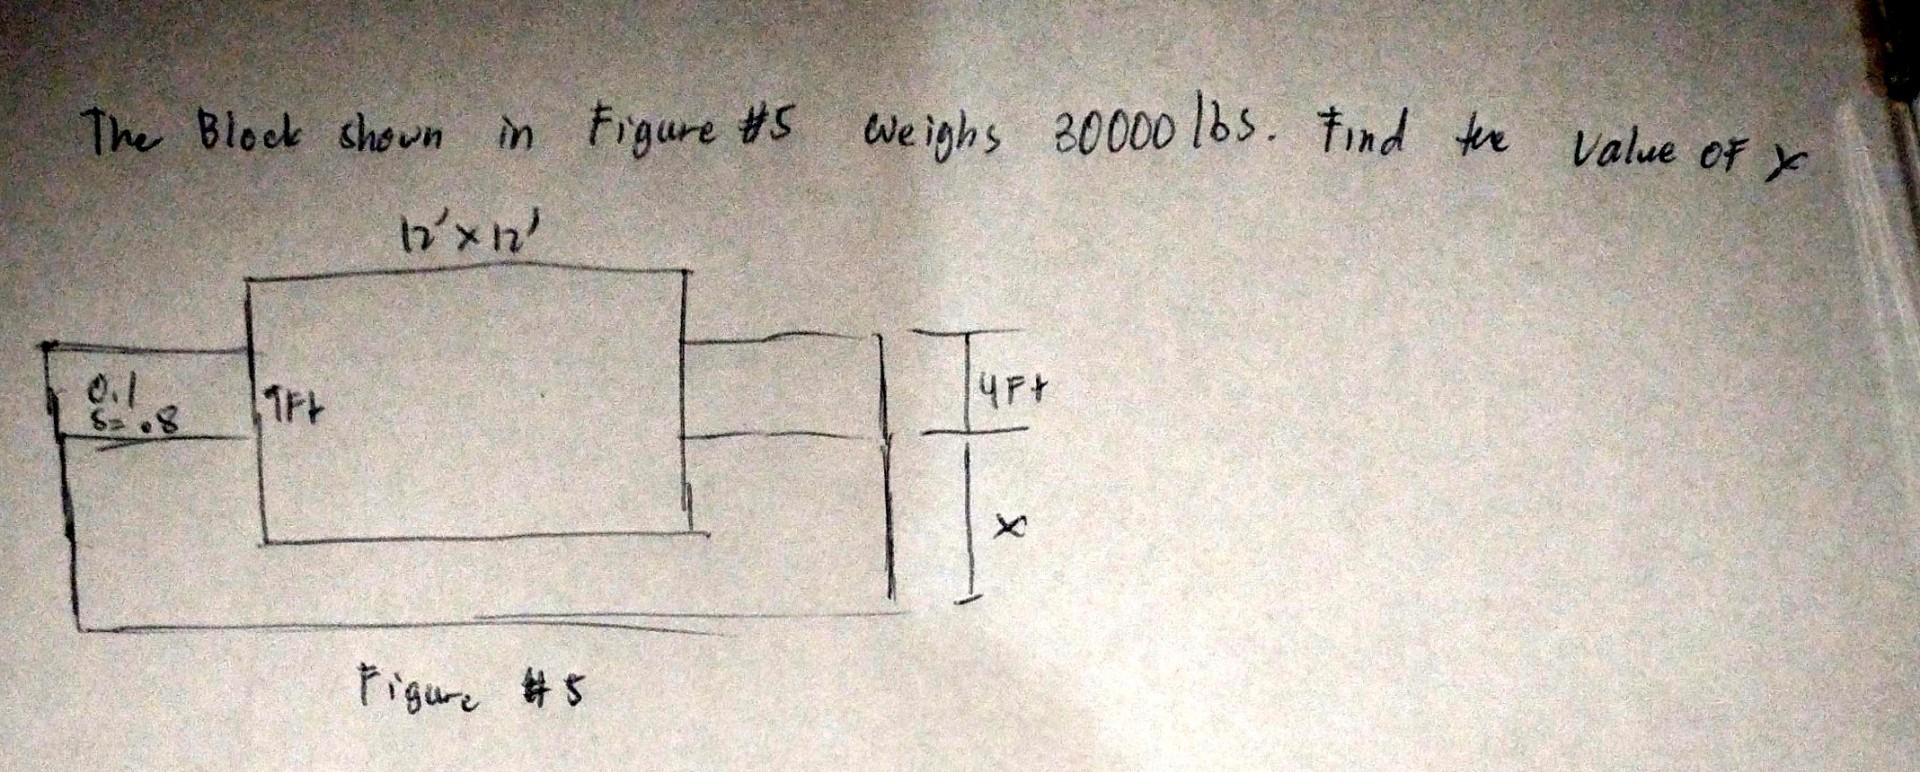 The Block shown in Figure #5 weighs 30000 lbs. Find the Value of x
12' x 12'
0.1
S= .8
9Ft
4Ft
x
Figure #5